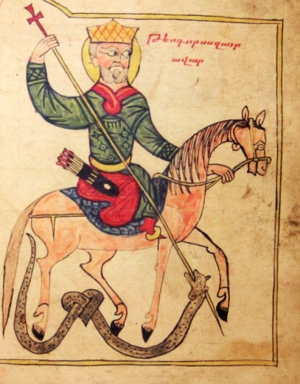 Թէոդորոս զաւր
ավար